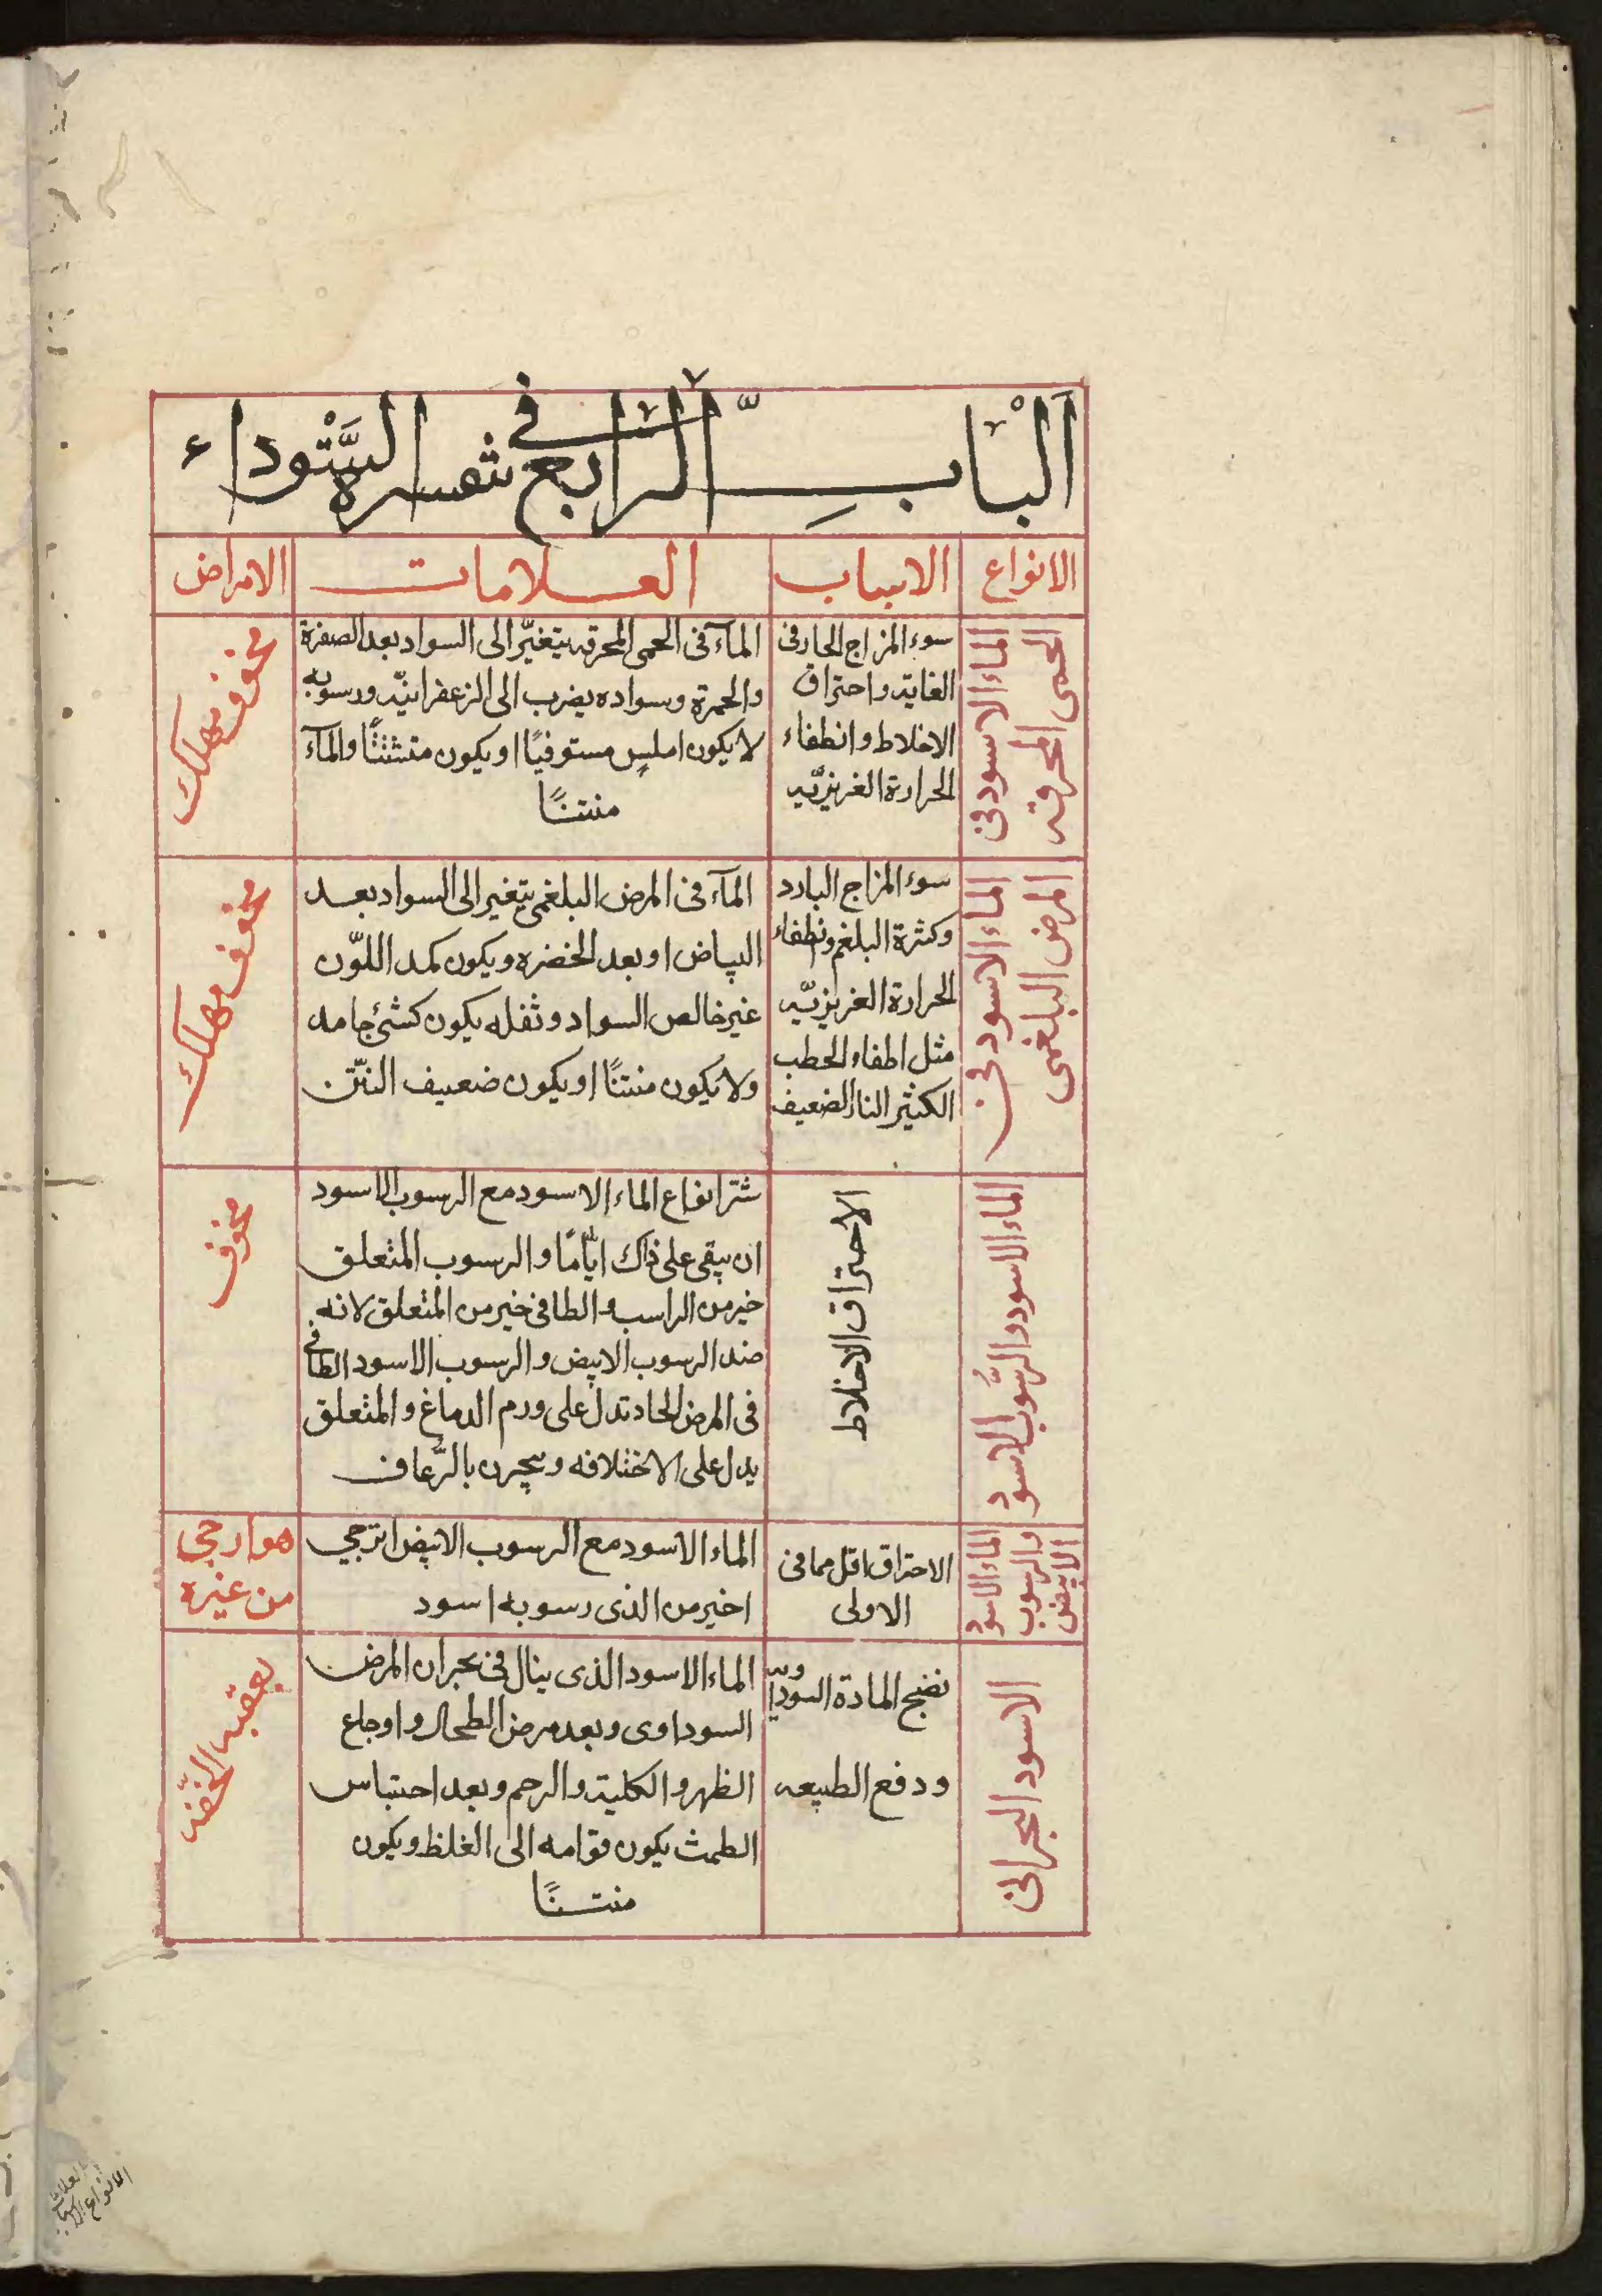 الباب الرابع في تفسرة السوداء
الانواع
الاسباب
العلامات
الامراض
الماء الاسود فى
الحمى المحرقه
سوء المزاج الحار فى
الغاية واحتراق
الاخلاط وانطفاء
الحرارة الغريزيّه
المآء فى الحمى المحرقه يتغيّر الى السواد بعد الصفرة
والحمرة وسواده يضرب الى الزعفرانيّه ورسوبه
لا يكون املس مستوفيًا او يكون متشتتًا والمآء
منتنًا
مخوف مهلك
الماء الاسود فى
المرض البلغمى
سوء المزاج البارد
وكثرة البلغم ونطفاء
الحرارة الغريزيّه
مثل اطفاء الحطب
الكثير النار الضعيف
المآء فى المرض البلغمى يتغير الى السواد بعد
البياض او بعد الخضره ويكون كمد اللوّن
غير خالص السواد وثفله يكون كشئ جامد
ولا يكون منتنًا او يكون ضعيف النّتن
مخوف مهلك
الماء الاسود والرّسُوب الاسود
الاحتراق الاخلاط
شتر انواع الماء الاسود مع الرسوب الاسود
ان يبقى على ذاك ايّامًا والرسوب المتعلق
خير من الراسب والطافى خير من المتعلق لانه
ضد الرسوب الابيض والرسوب الاسود الطافى
فى المرض الحاد تدل على ورم الدماغ والمتعلق
يدل على الاختلافه وبجرن بالرّعاف
مخوف
الماء الاسود
والرسوب
الابيض
الاحتراق اقل مما فى
الاولى
الماء الاسود مع الرسوب الابيض ارجى
اخير من الذى رسوبه اسود
هو ارجى
من غيره
الاسود البحرانى
نضج المادة السوداويّه
ودفع الطبيعه
الماء الاسود الذى ينال فى بحران المرض
السوداوى وبعد مرض الطحال واوجاع
الظهر والكلية والرحم وبعد احتباس
الطمث يكون قوامه الى الغلظ ويكون
منتنًا
يعقبه الخفّه
الانواع الاسباب
العلامات